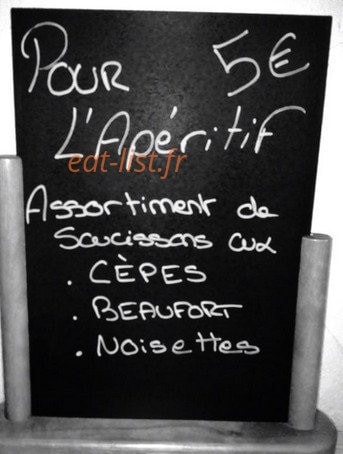 Pour 5€
L'Apéritif
eat-list.fr
Assortiment de
Saucissons aux
. CÈPES
. BEAUFORT
. Noisettes